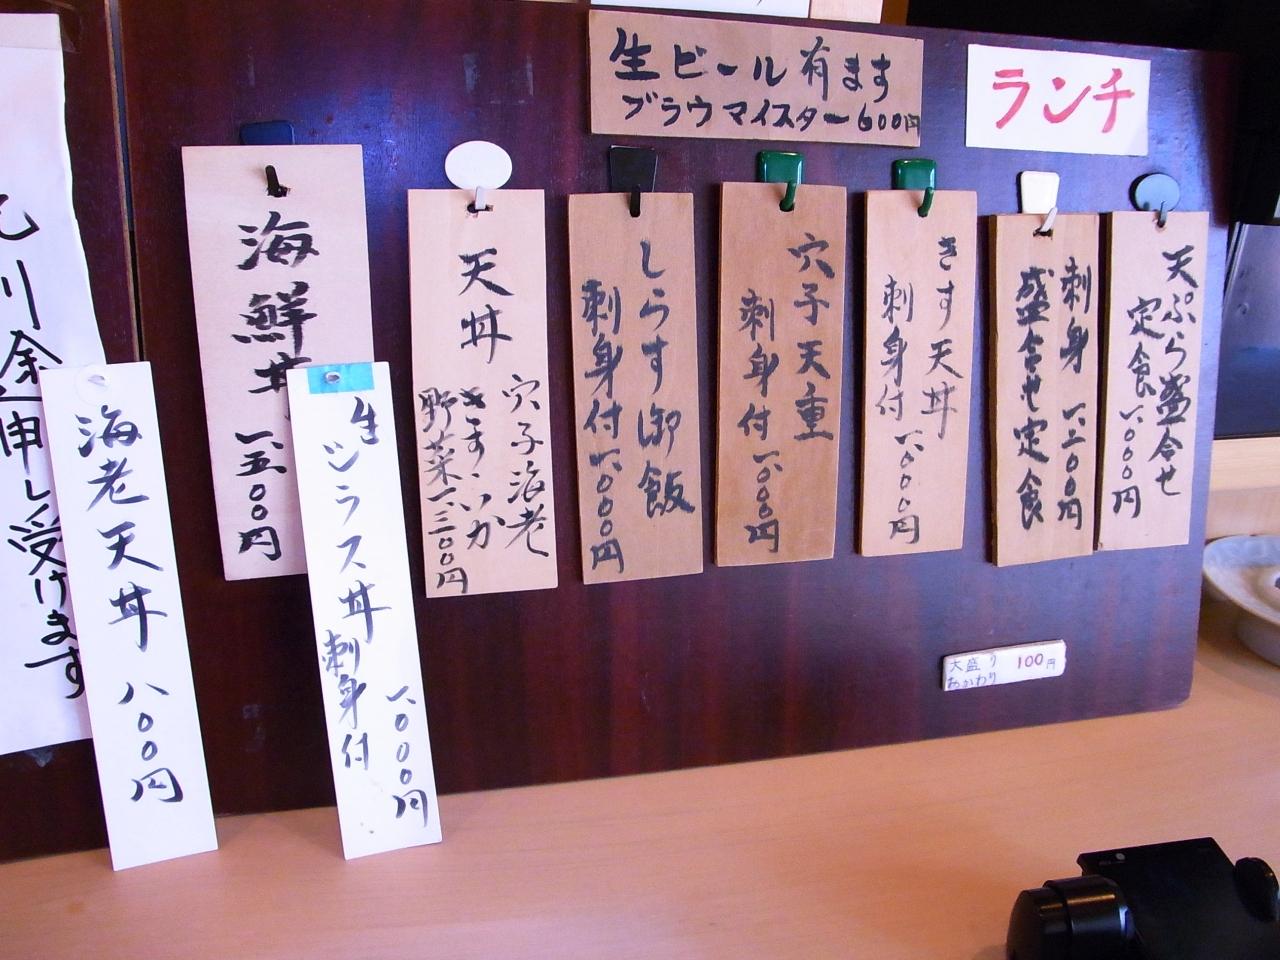 生ビール有ます
ブラウマイスター600円
ランチ
天ぷら盛合せ
定食 一、000円
刺身 一、二00円
盛合せ定食
きす天丼
刺身付 一、000円
穴子天重
刺身付 一、000円
しらす御飯
刺身付 一、000円
天丼
穴子海老
きす いか
野菜 一、三00円
海鮮丼 一、五00円
生シラス丼
刺身付 一、000円
海老天丼 八00円
申し受けます
大盛り 100円
おかわり